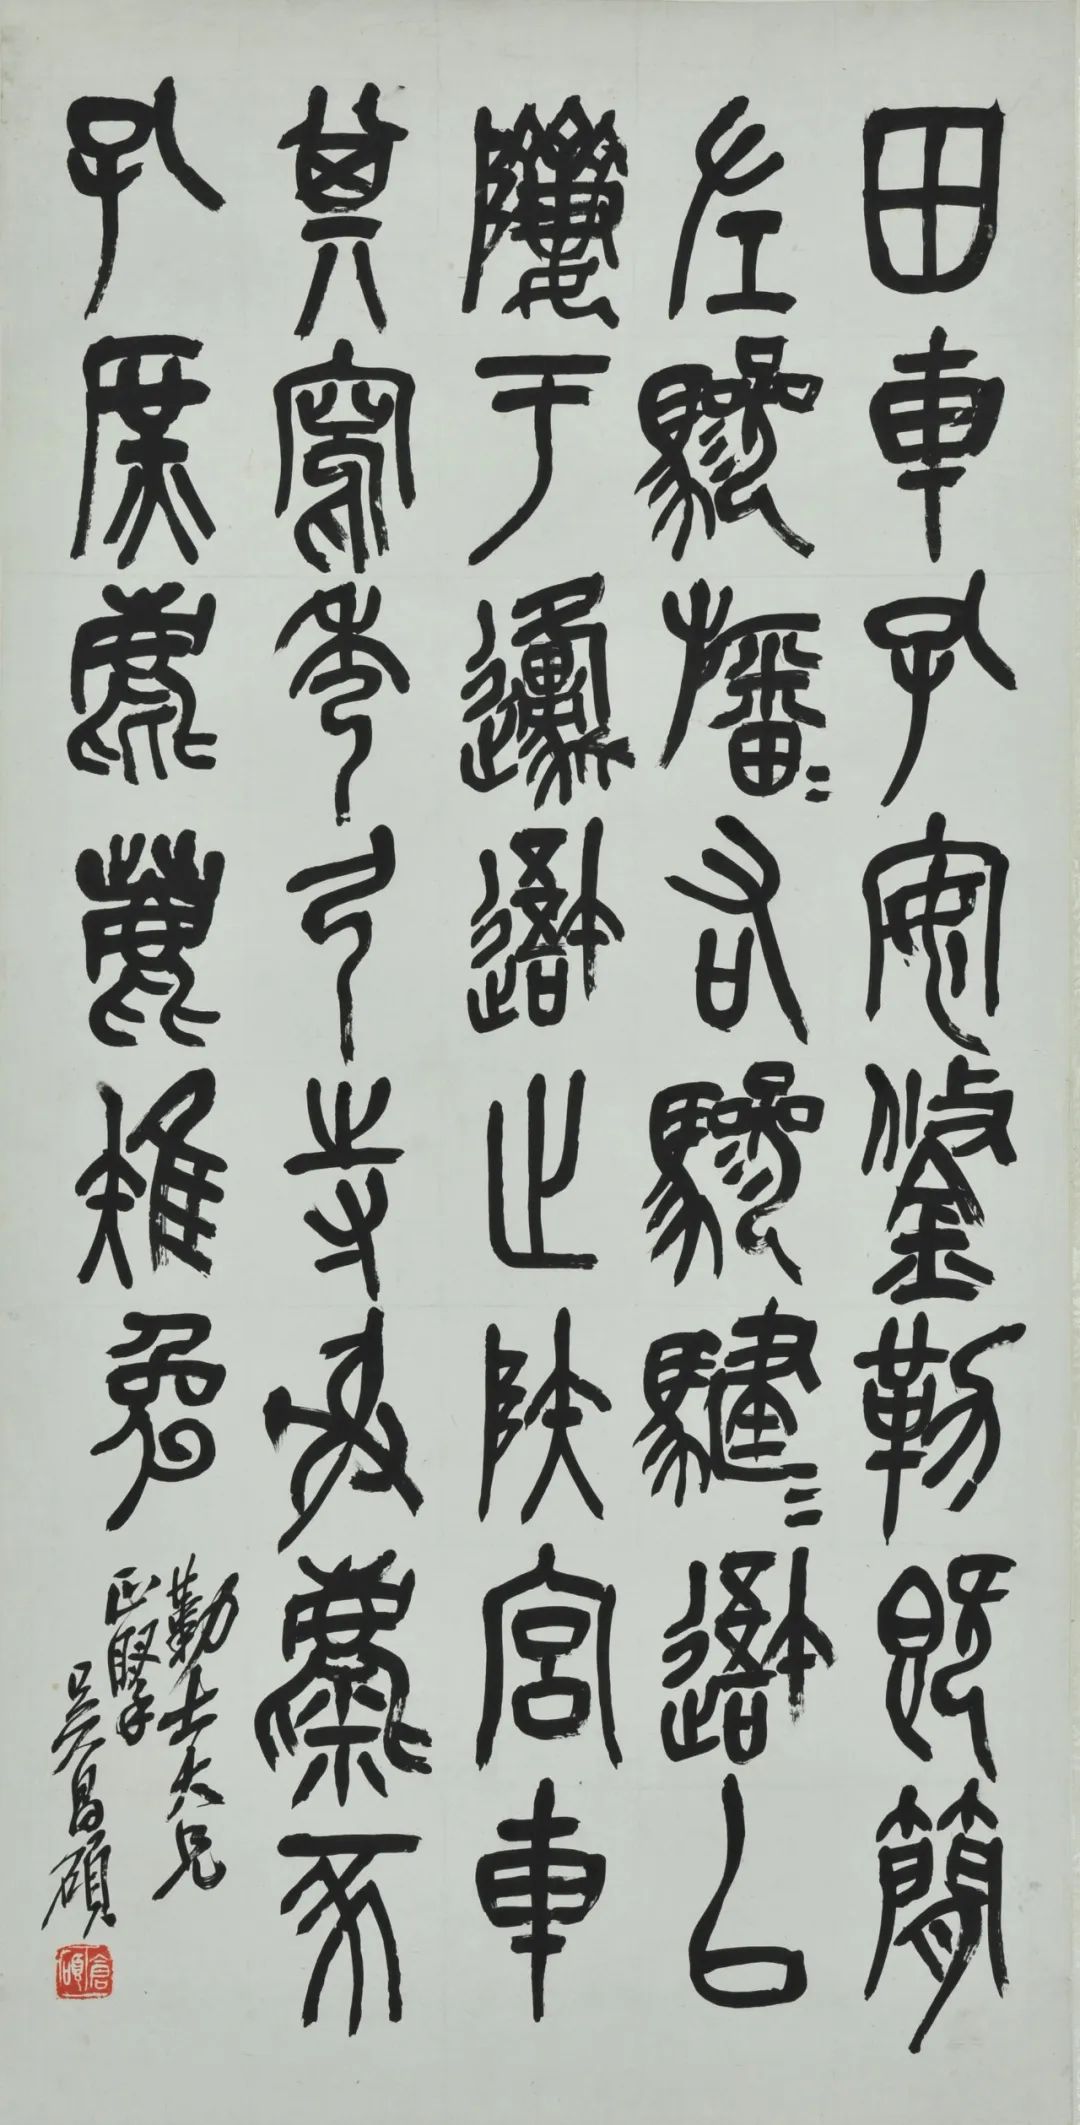 田車孔安鋚勒既簡
左驂旛=右驂騝=吾以
隮于邍吾止陝宮車
其寫秀弓寺射麋豕
孔庶麀鹿雉兔
勤士大兄
正
吳昌碩
倉碩